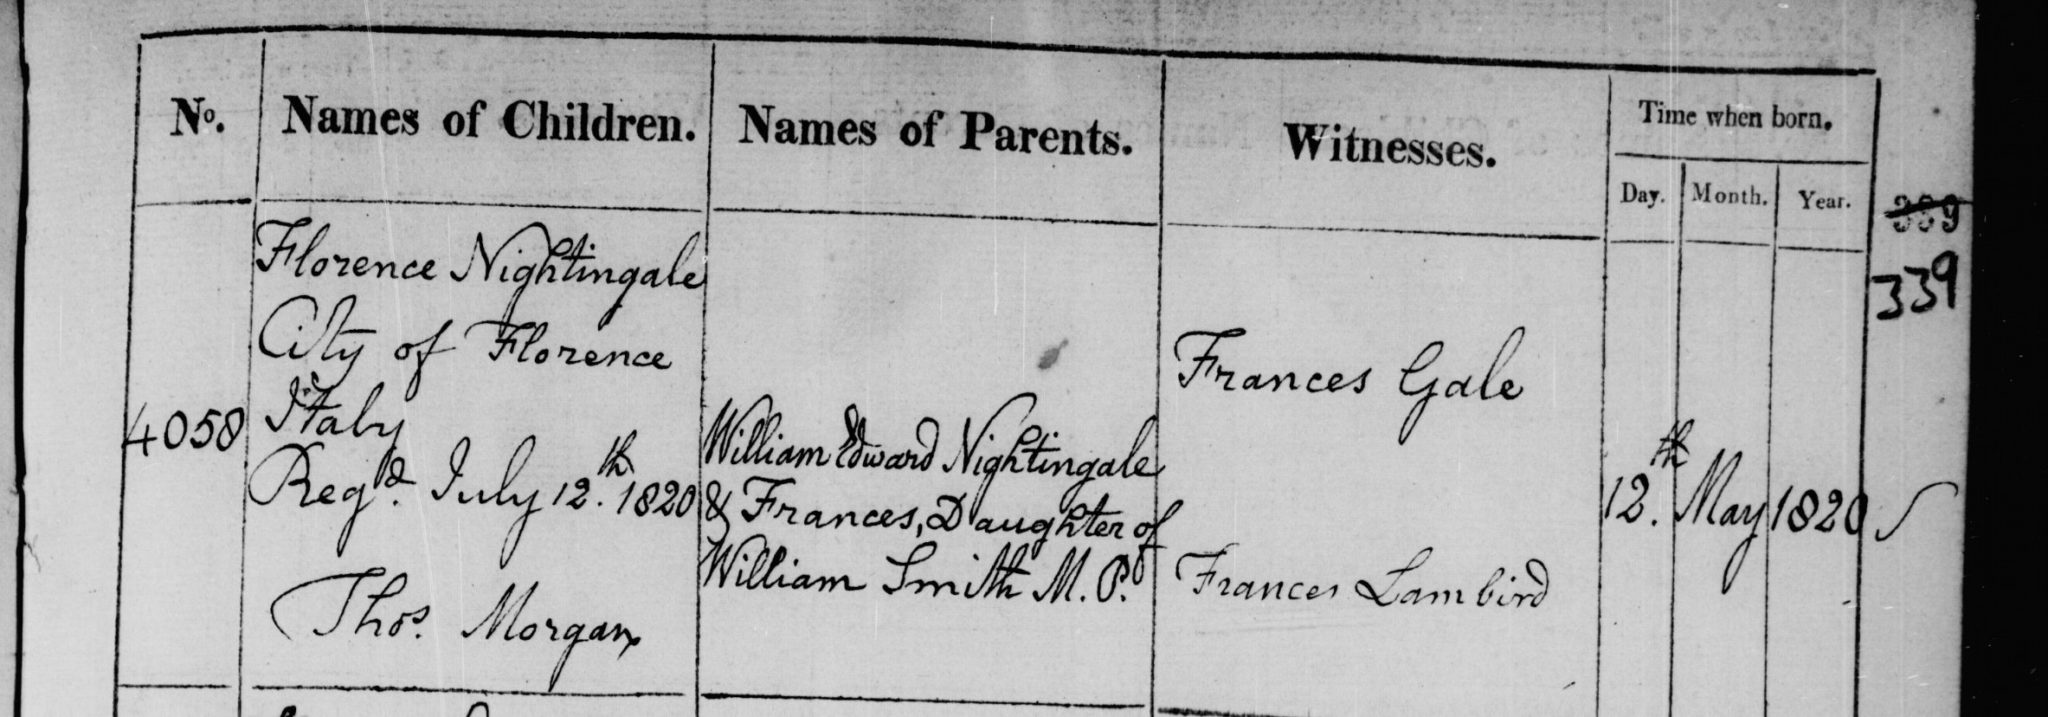 No. Names of Children. Names of Parents. Witnesses. Time when born.
Day. Month. Year.
339
339
Florence Nightingale
City of Florence
Italy
Regd. July 12.th 1820
Thos. Morgan
4058
William Edward Nightingale
& Frances, Daughter of
William Smith M.P.
Frances Gale
Frances Lambird
12.th May 1820